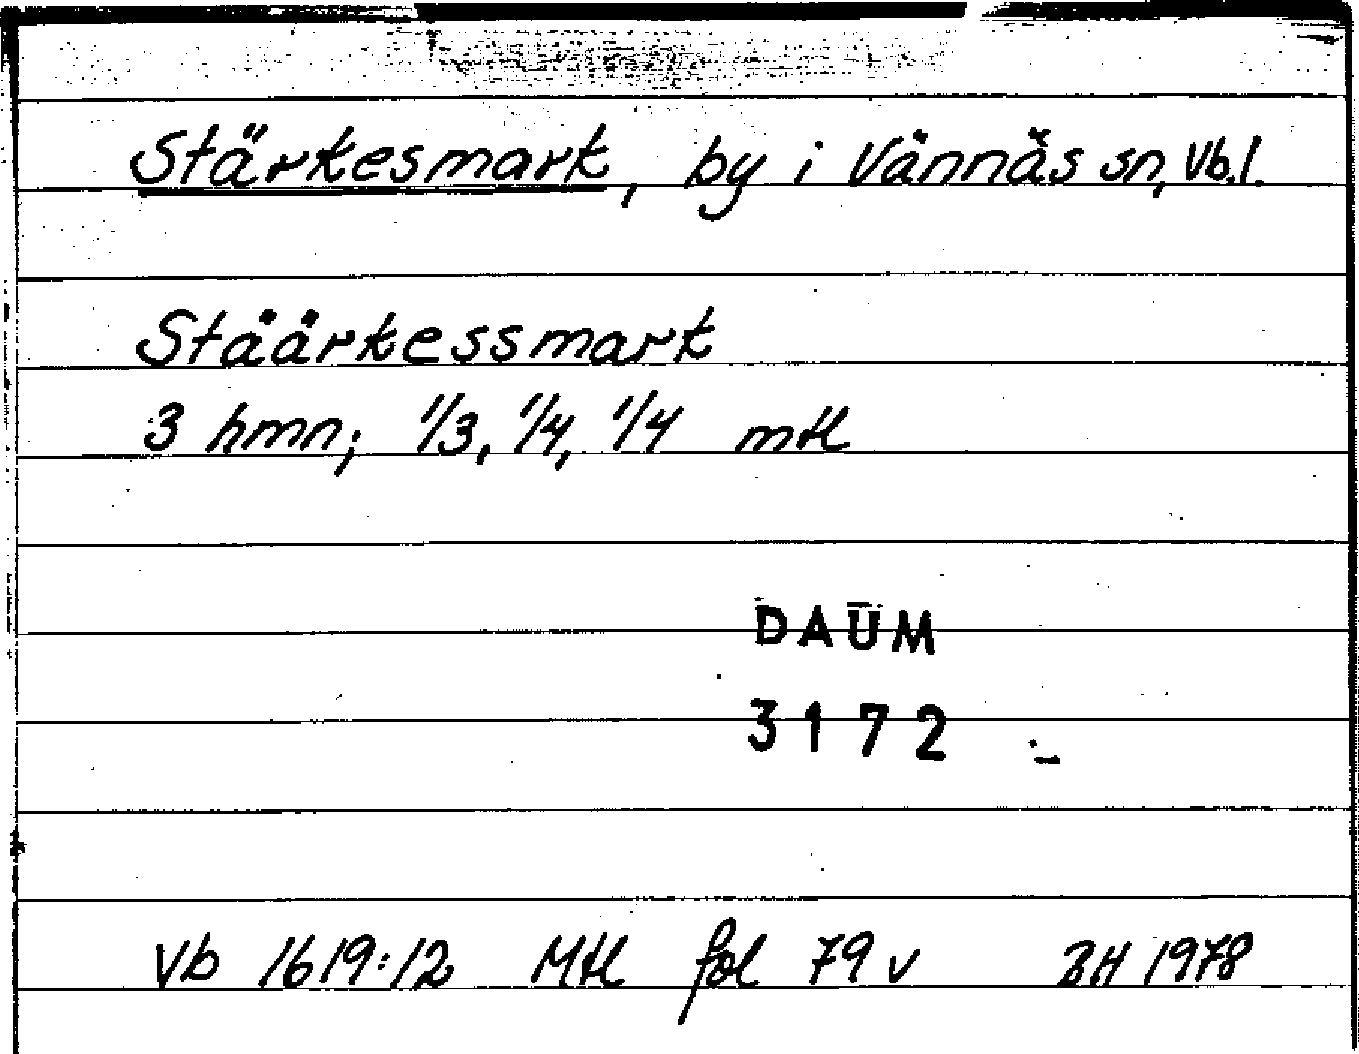 Stärkesmark, by i Vännäs sn, Vb.l.
Stäärkessmark
3 hmn; 1/3, 1/4, 1/4 mtl
DAUM
3172
Vb 1619:12 Mtl fol 79 v BH 1978